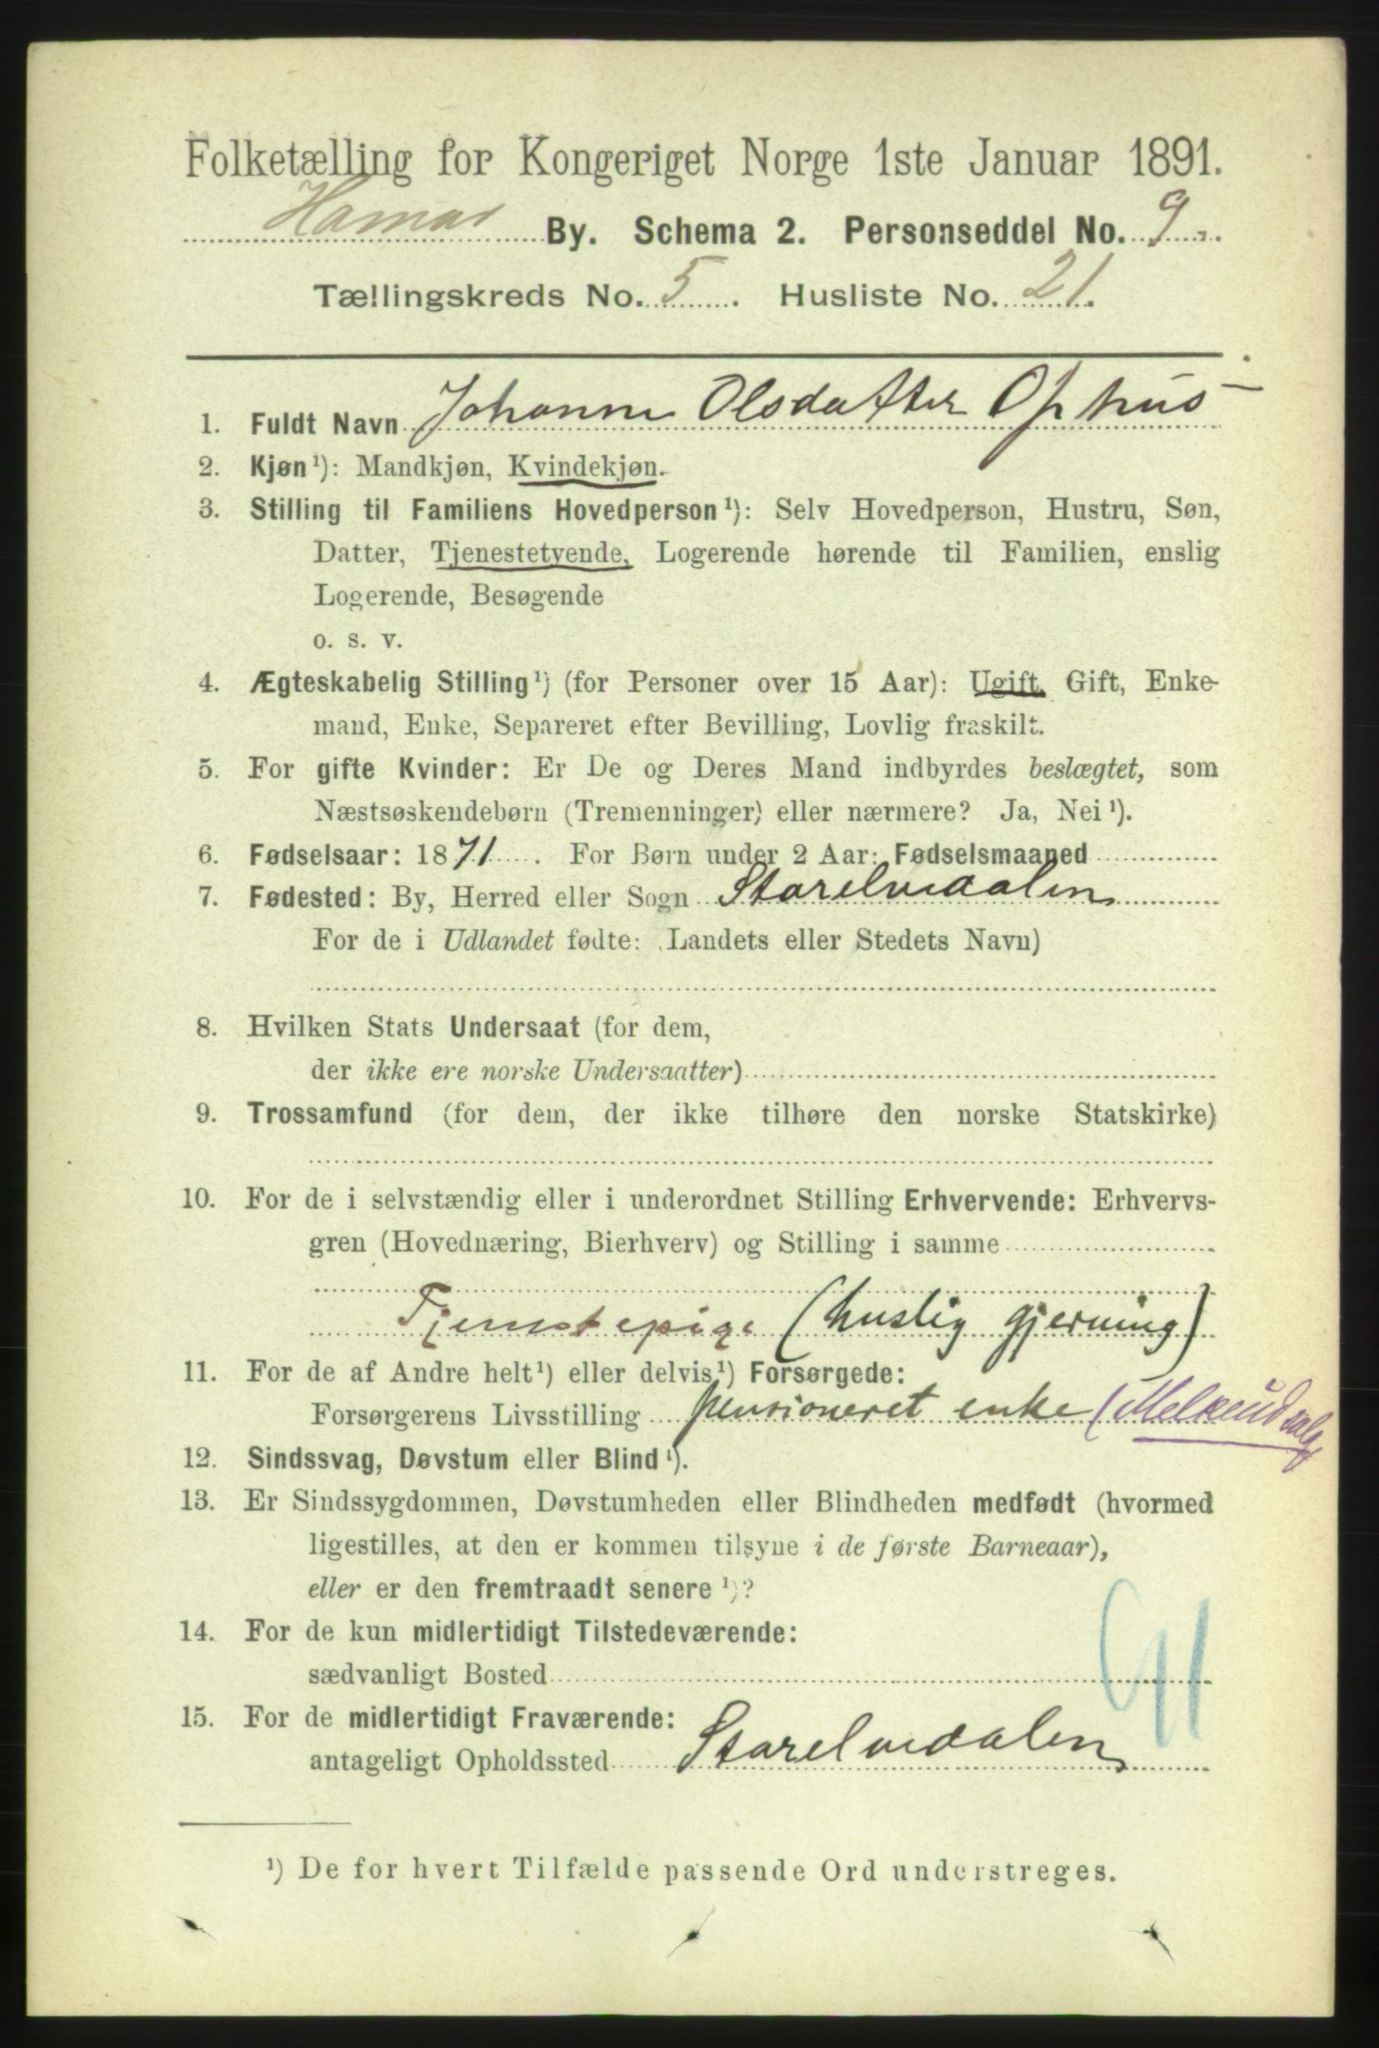 Folketælling for Kongeriget Norge 1ste Januar 1891.
Hamar By. Schema 2. Personseddel No. 9.
Tællingskreds No. 5. Husliste No. 21.
1. Fuldt Navn Johanne Olsdatter Ophus
2. Kjøn¹): Mandkjøn, Kvindekjøn.
3. Stilling til Familiens Hovedperson¹): Selv Hovedperson, Hustru, Søn,
Datter, Tjenestetyende, Logerende hørende til Familien, enslig
Logerende, Besøgende
o. s. v.
4. Ægteskabelig Stilling¹) (for Personer over 15 Aar): Ugift, Gift, Enke-
mand, Enke, Separeret efter Bevilling, Lovlig fraskilt.
5. For gifte Kvinder: Er De og Deres Mand indbyrdes beslægtet, som
Næstsøskendebørn (Tremenninger) eller nærmere? Ja, Nei¹).
6. Fødselsaar: 1871. For Børn under 2 Aar: Fødselsmaaned
7. Fødested: By, Herred eller Sogn Storelvedalen
For de i Udlandet fødte: Landets eller Stedets Navn)
8. Hvilken Stats Undersaat (for dem,
der ikke ere norske Undersaatter)
9. Trossamfund (for dem, der ikke tilhøre den norske Statskirke)
10. For de i selvstændig eller i underordnet Stilling Erhvervende: Erhvervs-
gren (Hovednæring, Bierhverv) og Stilling i samme
Tjenestepige (huslig gjerning)
11. For de af Andre helt¹) eller delvis¹) Forsørgede:
Forsørgerens Livsstilling pensioneret enke (Melkeudsalg
12. Sindssvag, Døvstum eller Blind¹).
13. Er Sindssygdommen, Døvstumheden eller Blindheden medfødt (hvormed
ligestilles, at den er kommen tilsyne i de første Barneaar),
eller er den fremtraadt senere¹)?
14. For de kun midlertidigt Tilstedeværende:
sædvanligt Bosted
15. For de midlertidigt Fraværende:
antageligt Opholdssted Storelvedalen
¹) De for hvert Tilfælde passende Ord understreges.